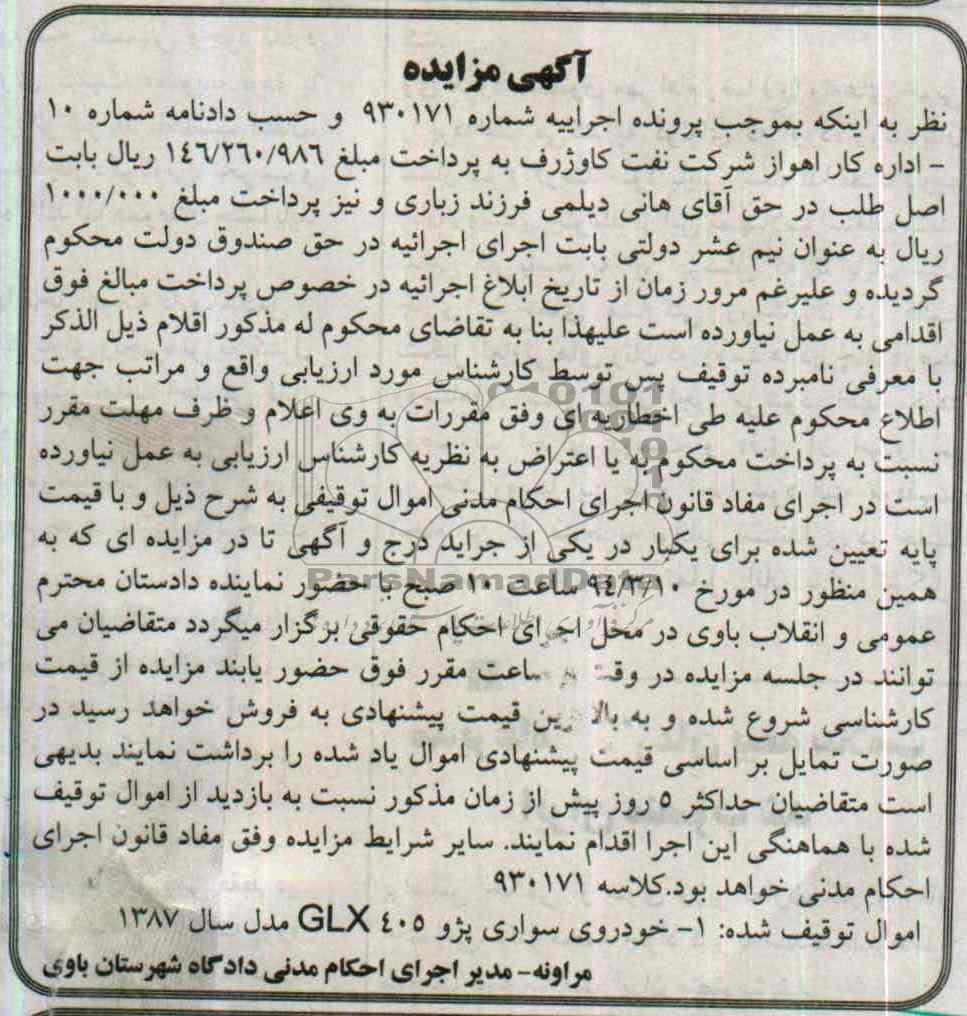 آگهی مزایده
نظر به اینکه بموجب پرونده اجراییه شماره ۹۳۰۱۷۱ و حسب دادنامه شماره ۱۰
- اداره کار اهواز شرکت نفت کاوژرف به پرداخت مبلغ ۱۴۶/۲۶۰/۹۸۶ ریال بابت
اصل طلب در حق آقای هانی دیلمی فرزند زباری و نیز پرداخت مبلغ ۱۰۰۰/۰۰۰
ریال به عنوان نیم عشر دولتی بابت اجرای اجرائیه در حق صندوق دولت محکوم
گردیده و علیرغم مرور زمان از تاریخ ابلاغ اجرائیه در خصوص پرداخت مبالغ فوق
اقدامی به عمل نیاورده است علیهذا بنا به تقاضای محکوم له مذکور اقلام ذیل الذکر
با معرفی نامبرده توقیف پس توسط کارشناس مورد ارزیابی واقع و مراتب جهت
اطلاع محکوم علیه طی اخطاریه ای وفق مقررات به وی اعلام و ظرف مهلت مقرر
نسبت به پرداخت محکوم به یا اعتراض به نظریه کارشناس ارزیابی به عمل نیاورده
است در اجرای مفاد قانون اجرای احکام مدنی اموال توقیفی به شرح ذیل و با قیمت
پایه تعیین شده برای یکبار در یکی از جراید درج و آگهی تا در مزایده ای که به
همین منظور در مورخ ۹۴/۳/۱۰ ساعت ۱۰ صبح با حضور نماینده دادستان محترم
عمومی و انقلاب باوی در محل اجرای احکام حقوقی برگزار میگردد متقاضیان می
توانند در جلسه مزایده در وقت و ساعت مقرر فوق حضور یابند مزایده از قیمت
کارشناسی شروع شده و به بالاترین قیمت پیشنهادی به فروش خواهد رسید در
صورت تمایل بر اساسی قیمت پیشنهادی اموال یاد شده را برداشت نمایند بدیهی
است متقاضیان حداکثر ۵ روز پیش از زمان مذکور نسبت به بازدید از اموال توقیف
شده با هماهنگی این اجرا اقدام نمایند. سایر شرایط مزایده وفق مفاد قانون اجرای
احکام مدنی خواهد بود.کلاسه ۹۳۰۱۷۱
اموال توقیف شده: ۱- خودروی سواری پژو ۴۰۵ GLX مدل سال ۱۳۸۷
مراونه- مدیر اجرای احکام مدنی دادگاه شهرستان باوی
ParsNamadData